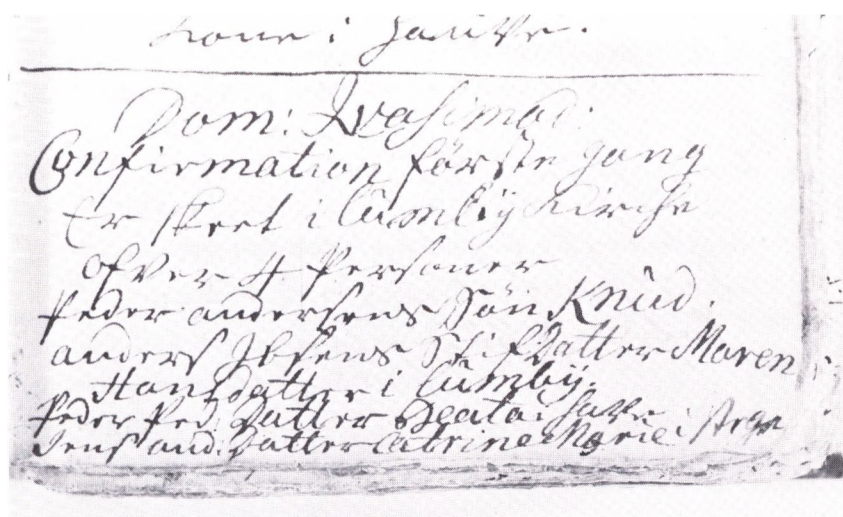 Kone i
Dom: Qvasimod:
Confirmation første gang
Er skeet i Lumbÿ Kirche
ofver 4 Personer
Peder andersens Søn Knud.
anders Ibsens Stifdatter Maren
Hansdatter i Lumbÿ.
Peder Ped. Datter Beata i
Jens and. Datter Catrine Marie i